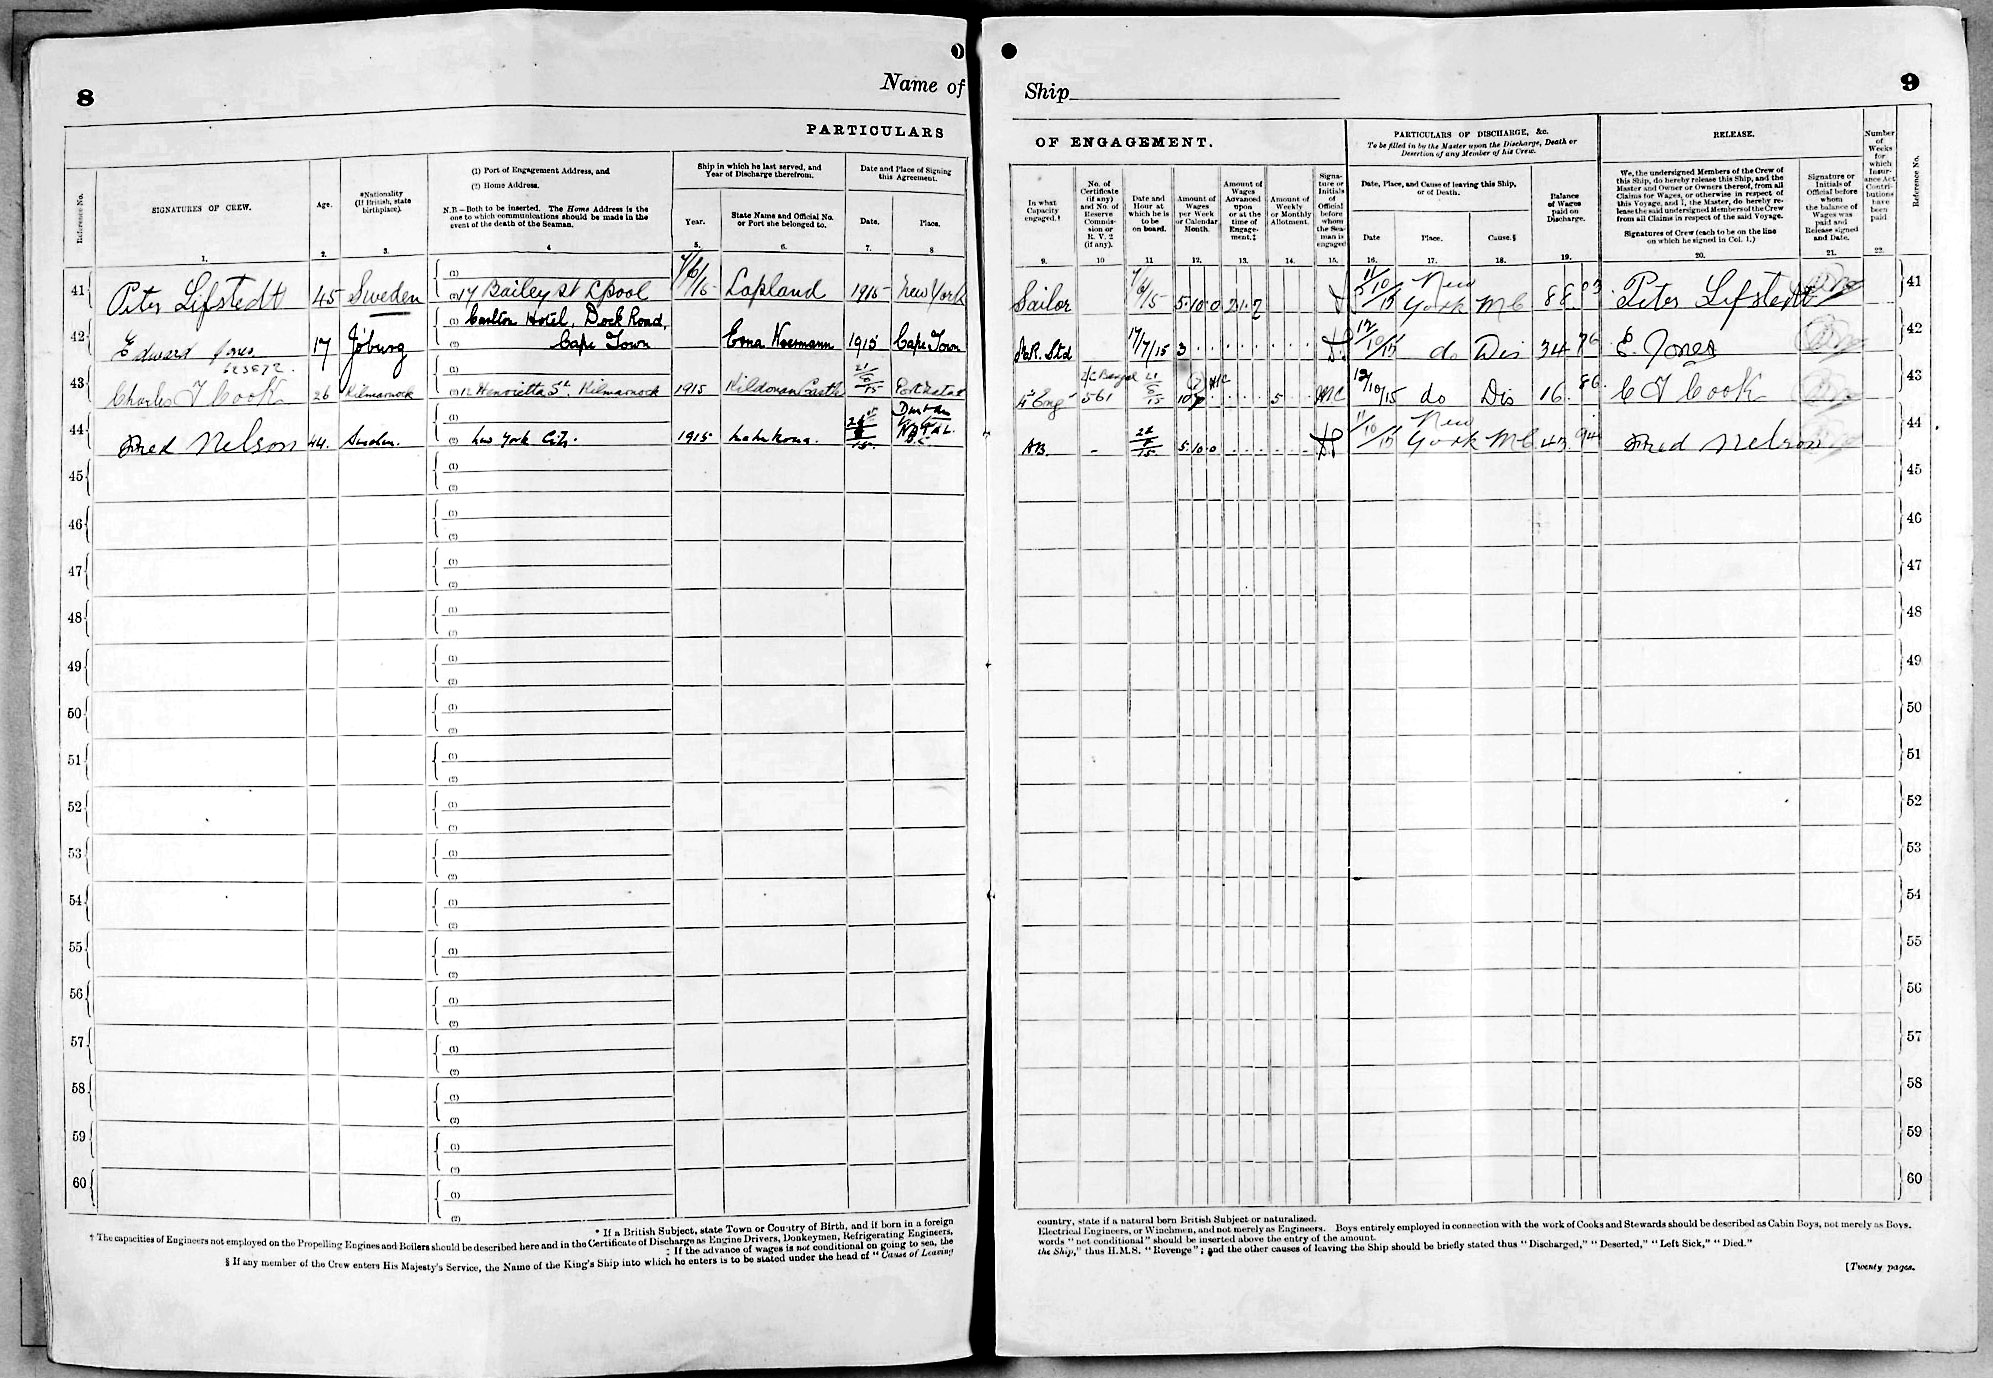 8
Name of
PARTICULARS
Reference No.
SIGNATURES OF CREW.
1.
Age.
2.
*Nationality
(If British, state
birthplace).
3.
(1) Port of Engagement Address, and
(2) Home Address.
N.B.—Both to be inserted. The Home Address is the
one to which communications should be made in the
event of the death of the Seaman.
4
Ship in which he last served, and
Year of Discharge therefrom.
Year.
5.
State Name and Official No.
or Port she belonged to.
6.
Date and Place of Signing
this Agreement.
Date.
7.
Place.
8
41 Peter Lifstedt 45 Sweden (1) (2) 17 Bailey St Lpool Lapland 1915 New York
42 Edward Jones 17 Jo'burg (1) Carlton Hotel, Dock Road,
(2) Cape Town 1915 Cape Town
623872.
43 Charles T Cook 26 Kilmarnock (1) (2) 12 Henrietta St. Kilmarnock 1915 Kildonan Castle 21/5/15 Port Natal
44 Fred Nelson 44. Sweden. (2) New York City. 1915 Durban
45 (1) (2)
46 (1) (2)
47 (1) (2)
48 (1) (2)
49 (1) (2)
50 (1) (2)
51 (1) (2)
52 (1) (2)
53 (1) (2)
54 (1) (2)
55 (1) (2)
56 (1) (2)
57 (1) (2)
58 (1) (2)
59 (1) (2)
60 (1) (2)
* If a British Subject, state Town or Country of Birth, and if born in a foreign
† The capacities of Engineers not employed on the Propelling Engines and Boilers should be described here and in the Certificate of Discharge as Engine Drivers, Donkeymen, Refrigerating Engineers,
‡ If the advance of wages is not conditional on going to sea, the
§ If any member of the Crew enters His Majesty's Service, the Name of the King's Ship into which he enters is to be stated under the head of "Cause of Leaving
Ship
9
OF ENGAGEMENT.
PARTICULARS OF DISCHARGE, &c.
To be filled in by the Master upon the Discharge, Death or
Desertion of any Member of his Crew.
RELEASE.
In what
Capacity
engaged.†
9.
No. of
Certificate
(if any)
and No. of
Reserve
Commis-
sion or
R. V. 2
(if any).
10
Date and
Hour at
which he is
to be
on board.
11
Amount of
Wages
per Week
or Calendar
Month.
12.
Amount of
Wages
Advanced
upon
or at the
time of
Engage-
ment.‡
13.
Amount of
Weekly
or Monthly
Allotment.
14.
Signa-
ture or
Initials
of
Official
before
whom
the Sea-
man is
engaged
15.
Date, Place, and Cause of leaving this Ship,
or of Death.
Date
16.
Place.
17.
Cause.§
18.
Balance
of Wages
paid on
Discharge.
19.
We, the undersigned Members of the Crew of
this Ship, do hereby release this Ship, and the
Master and Owner or Owners thereof, from all
Claims for Wages, or otherwise in respect of
this Voyage, and I, the Master, do hereby re-
lease the said undersigned Members of the Crew
from all Claims in respect of the said Voyage.
Signatures of Crew (each to be on the line
on which he signed in Col. 1.)
20.
Signature or
Initials of
Official before
whom
the balance of
Wages was
paid and
Release signed
and Date.
21.
Number
of
Weeks
for
which
Insur-
ance Act
Contri-
butions
have
been
paid
22.
Reference No.
Sailor 5 10 0 11/10/15 New York 88 03 Peter Lifstedt 41
17/7/15 3 12/10/15 do Dis 34 76 E. Jones 42
561 5 12/10/15 do Dis 16. 86 C T Cook 43
AB. - 5 10 0 11/10/15 New York 43 94 Fred Nelson 44
45
46
47
48
49
50
51
52
53
54
55
56
57
58
59
60
country, state if a natural born British Subject or naturalized.
Electrical Engineers, or Winchmen, and not merely as Engineers. Boys entirely employed in connection with the work of Cooks and Stewards should be described as Cabin Boys, not merely as Boys.
words "not conditional" should be inserted above the entry of the amount.
the Ship," thus H.M.S. "Revenge"; and the other causes of leaving the Ship should be briefly stated thus "Discharged," "Deserted," "Left Sick," "Died."
[Twenty pages.